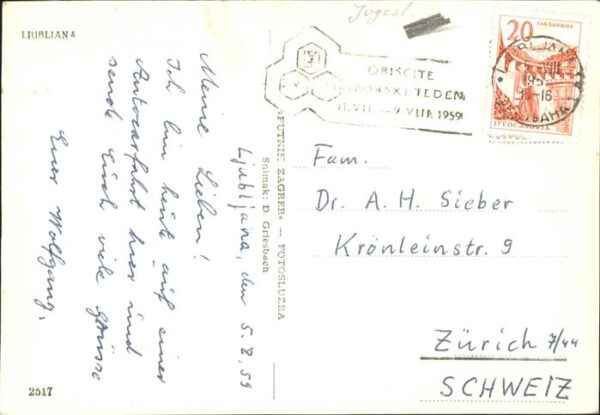 LJUBLJANA
Jugosl.
OBIŠČITE
MARIBORSKI TEDEN
31.VII. - 9 VIII. 1959
20
ЈУГОСЛАВИЈА
LJUBLJANA
Ljubljana, den 5.8.59
Meine Lieben!
Ich bin heute auf einer
Autocarfahrt hier und
sende Euch viele Grüsse
Euer Wolfgang.
»PUTNIK ZAGREB« — FOTOSLUŽBA
Snimak: D. Griesbach
Fam.
Dr. A. H. Sieber
Krönleinstr. 9
Zürich 7/44
SCHWEIZ
2517